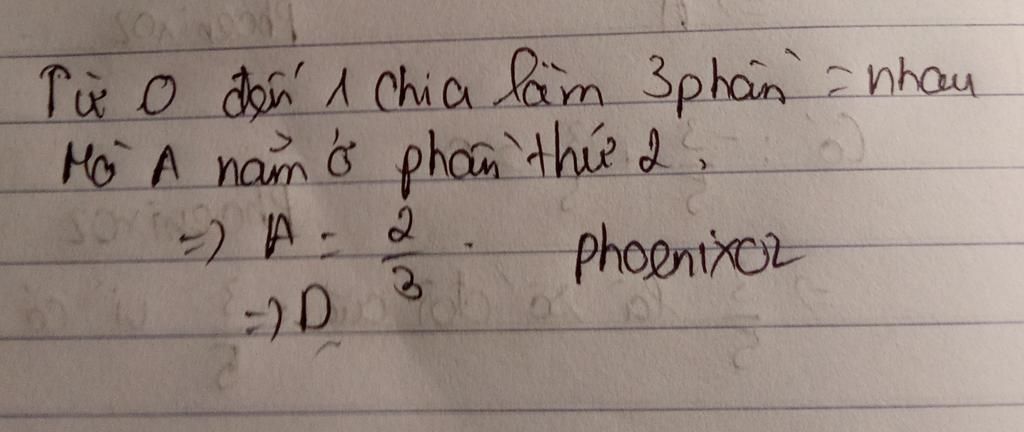 Từ 0 đến 1 chia làm 3 phần = nhau
Mà A nằm ở phần thứ 2.
=> A = 2/3.
phoenixoz
=> D